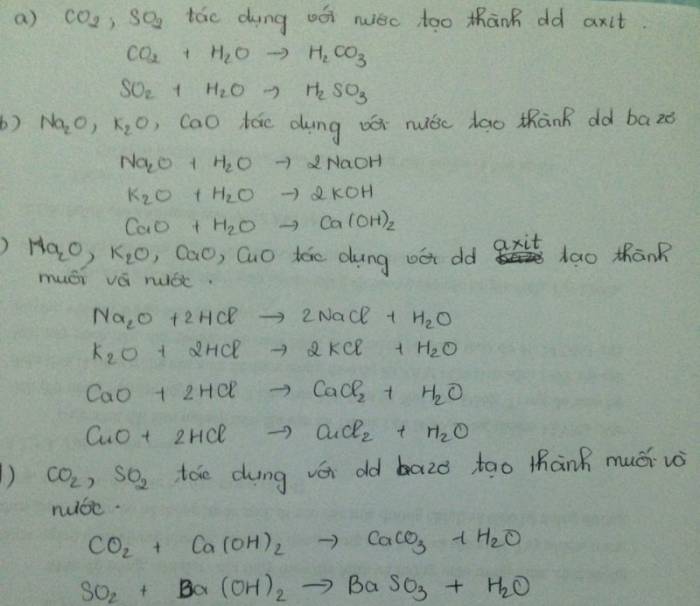 a) CO₂, SO₂ tác dụng với nước tạo thành dd axit.
CO₂ + H₂O → H₂CO₃
SO₂ + H₂O → H₂SO₃
b) Na₂O, K₂O, CaO tác dụng với nước tạo thành dd bazơ
Na₂O + H₂O → 2NaOH
K₂O + H₂O → 2KOH
CaO + H₂O → Ca(OH)₂
) Na₂O, K₂O, CaO, CuO tác dụng với dd axit tạo thành
muối và nước.
Na₂O + 2HCl → 2NaCl + H₂O
K₂O + 2HCl → 2KCl + H₂O
CaO + 2HCl → CaCl₂ + H₂O
CuO + 2HCl → CuCl₂ + H₂O
d) CO₂, SO₂ tác dụng với dd bazơ tạo thành muối và
nước.
CO₂ + Ca(OH)₂ → CaCO₃ + H₂O
SO₂ + Ba(OH)₂ → BaSO₃ + H₂O